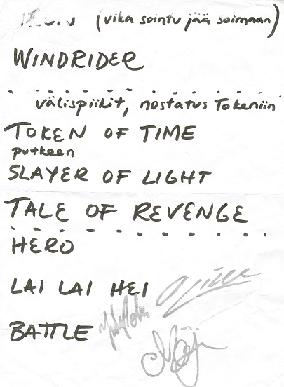 (vika sointu jää soimaan)
WINDRIDER
välispiikit, nostatus Tokeniin
TOKEN OF TIME
putkeen
SLAYER OF LIGHT
TALE OF REVENGE
HERO
LAI LAI HEI
BATTLE